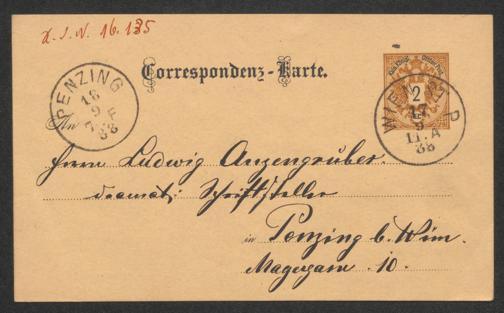 H. I. N. 16.135
Correspondenz-Karte.
PENZING
18
9
88
An
WIEN
2
17
9
11.A
88
Herrn Ludwig Anzengruber.
dramat: Schriftsteller
in Penzing b. Wien.
10.